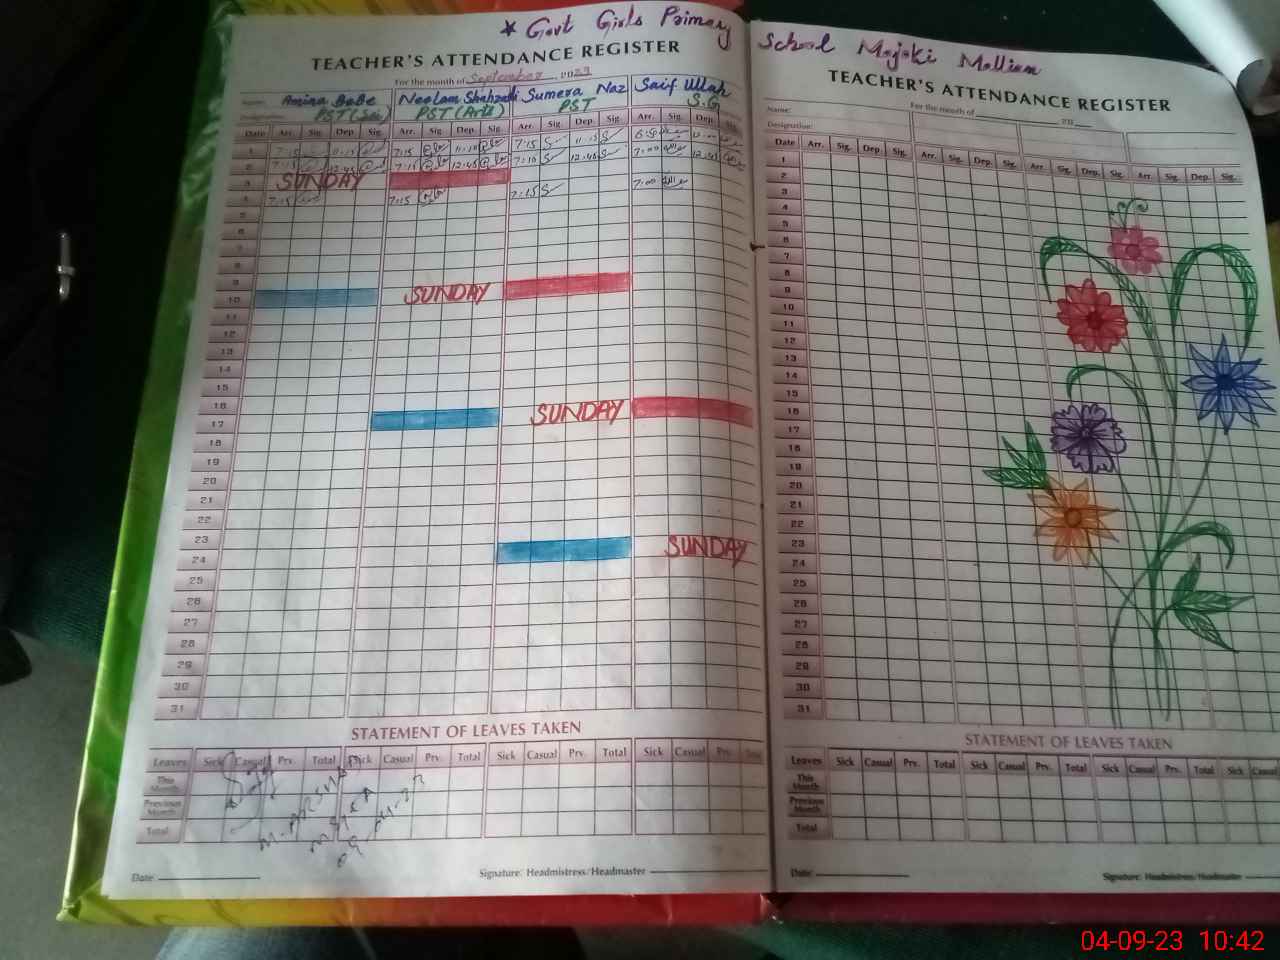 * Govt Girls Primary School Majoki Mallian
TEACHER'S ATTENDANCE REGISTER
For the month of September 2023
Name: Amina BeBe Neelam Shahzadi Sumera Naz Saif Ullah
Designation: PST (Sci) PST (Arts) PST S.G
Date Arr. Sig. Dep. Sig. Arr. Sig. Dep. Sig. Arr. Sig. Dep. Sig. Arr. Sig. Dep. Sig.
1 7:15 11:15 7:15 11:15 7:15 11:15
2 7:15 12:45 7:15 12:45 7:10 12:45 7:00 12:45
3 SUNDAY
4 7:15 7:15 7:15 7:00
5
6
7
8
9
10 SUNDAY
11
12
13
14
15
16
17 SUNDAY
18
19
20
21
22
23
24 SUNDAY
25
26
27
28
29
30
31
STATEMENT OF LEAVES TAKEN
Leaves Sick Casual Prv. Total Sick Casual Prv. Total Sick Casual Prv. Total Sick Casual Prv. Total
This Month
Previous Month
Total
M. ARSHAD
Date
Signature: Headmistress/Headmaster
TEACHER'S ATTENDANCE REGISTER
For the month of 20
Name:
Designation:
Date Arr. Sig. Dep. Sig. Arr. Sig. Dep. Sig. Arr. Sig. Dep. Sig. Arr. Sig. Dep. Sig.
1
2
3
4
5
6
7
8
9
10
11
12
13
14
15
16
17
18
19
20
21
22
23
24
25
26
27
28
29
30
31
STATEMENT OF LEAVES TAKEN
Leaves Sick Casual Prv. Total Sick Casual Prv. Total Sick Casual Prv. Total Sick Casual
This Month
Previous Month
Total
Date:
Signature: Headmistress/Headmaster
04-09-23 10:42